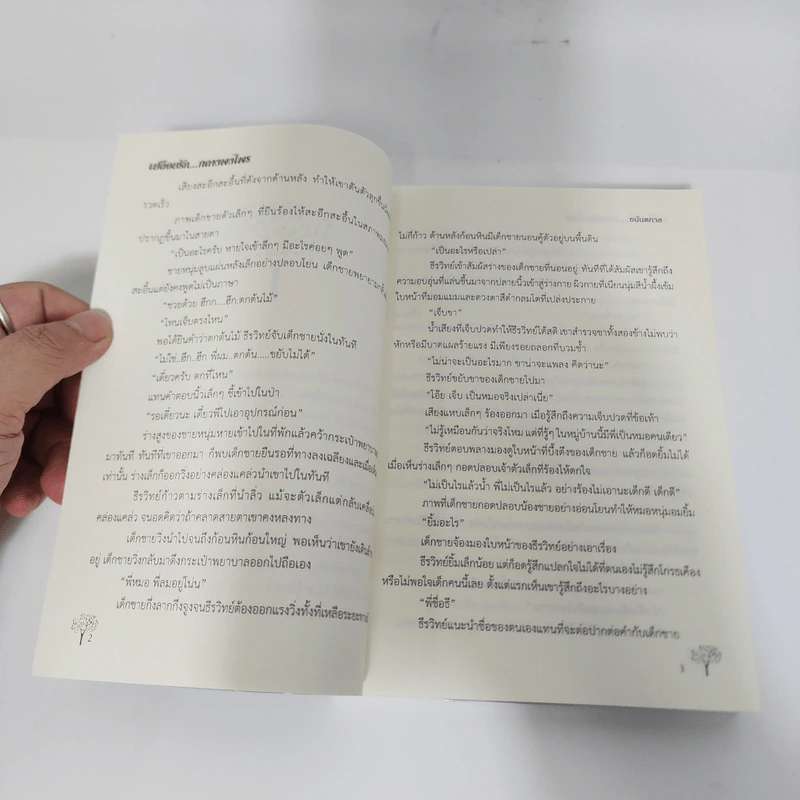 เปลือยรัก...กลางพงไพร
เสียงสะอึกสะอื้นที่ดังจากด้านหลัง ทำให้เขาดันตัวลุกขึ้น
รวดเร็ว
ภาพเด็กชายตัวเล็กๆ ที่ยืนร้องให้สะอึกสะอื้นในสภาพ
ปรากฏขึ้นมาในสายตา
“เป็นอะไรครับ หายใจเข้าลึกๆ มีอะไรค่อยๆ พูด”
ชายหนุ่มลูบแผ่นหลังเล็กอย่างปลอบโยน เด็กชายพยายาม
สะอื้นแต่ยังคงพูดไม่เป็นภาษา
“ช่วยด้วย ฮึกก....ฮึก.ตกต้นไม้”
“ไหนเจ็บตรงไหน”
พอได้ยินคำว่าตกต้นไม้ ธีรวิทย์จับเด็กชายนั่งในทันที
“ไม่ใช่..ฮึก..ฮึก พี่ผม..ตกต้น.....ขยับไม่ได้”
“เดี๋ยวครับ ตกที่ไหน”
แทนคำตอบนิ้วเล็กๆ ชี้เข้าไปในป่า
“รอเดี๋ยวนะ เดี๋ยวพี่ไปเอาอุปกรณ์ก่อน”
ร่างสูงของชายหนุ่มหายเข้าไปในที่พักแล้วคว้ากระเป๋าพยาบาล
มาทันที ทันทีที่เขาออกมา ก็พบเด็กชายยืนรอที่ทางลงเฉลียงและเมื่อ
เท่านั้น ร่างเล็กก็ออกวิ่งอย่างคล่องแคล่วนำเขาเข้าไปในทันที
ธีรวิทย์ก้าวตามร่างเล็กที่นำลิ่ว แม้จะตัวเล็กแต่กลับเคลื่อน
คล่องแคล่ว จนอดคิดว่าถ้าคลาดสายตาเขาคงหลงทาง
เด็กชายวิ่งนำไปจนถึงก้อนหินก้อนใหญ่ พอเห็นว่าเขายังเดิน
อยู่ เด็กชายวิ่งกลับมาดึงกระเป๋าพยาบาลออกไปถือเอง
“พี่หมอ พี่ลมอยู่โน่น”
เด็กชายกึ่งลากกึ่งจูงจนธีรวิทย์ต้องออกแรงวิ่งทั้งที่เหลือระยะทาง
2
อนันตกาล
ไม่กี่ก้าว ด้านหลังก้อนหินมีเด็กชายนอนคู้ตัวอยู่บนพื้นดิน
“เป็นอะไรหรือเปล่า”
ธีรวิทย์เข้าสัมผัสร่างของเด็กชายที่นอนอยู่ ทันทีที่ได้สัมผัสเขารู้สึกถึง
ความอบอุ่นที่แล่นขึ้นมาจากปลายนิ้วเข้าสู่ร่างกาย ผิวกายที่เนียนนุ่มสีน้ำผึ้งเข้ม
ใบหน้าที่มอมแมมและดวงตาสีดำกลมโตที่เปล่งประกาย
“เจ็บขา”
น้ำเสียงที่เจ็บปวดทำให้ธีรวิทย์ได้สติ เขาสำรวจขาทั้งสองข้างไม่พบว่า
หักหรือมีบาดแผลร้ายแรง มีเพียงรอยถลอกที่บวมช้ำ
“ไม่น่าจะเป็นอะไรมาก ขาน่าจะแพลง คิดว่านะ”
ธีรวิทย์ขยับขาของเด็กชายไปมา
“โอ๊ย เจ็บ เป็นหมอจริงเปล่าเนี่ย”
เสียงแหบเล็กๆ ร้องออกมา เมื่อรู้สึกถึงความเจ็บปวดที่ข้อเท้า
“ไม่รู้เหมือนกันว่าจริงไหม แต่ที่รู้ๆ ในหมู่บ้านนี้มีพี่เป็นหมอคนเดียว”
ธีรวิทย์ตอบพลางมองดูใบหน้าที่บึ้งตึงของเด็กชาย แล้วก็อดยิ้มไม่ได้
เมื่อเห็นร่างเล็กๆ กอดปลอบเจ้าตัวเล็กที่ร้องให้ตกใจ
“ไม่เป็นไรแล้วน้ำ พี่ไม่เป็นไรแล้ว อย่างร้องไม่เอานะเด็กดี เด็กดี”
ภาพที่เด็กชายกอดปลอบน้องชายอย่างอ่อนโยนทำให้หมอหนุ่มอมยิ้ม
“ยิ้มอะไร”
เด็กชายจ้องมองใบหน้าของธีรวิทย์อย่างเอาเรื่อง
ธีรวิทย์ยิ้มเล็กน้อย แต่ก็อดรู้สึกแปลกใจไม่ได้ที่ตนเองไม่รู้สึกโกรธเคือง
หรือไม่พอใจเด็กคนนี้เลย ตั้งแต่แรกเห็นเขารู้สึกถึงอะไรบางอย่าง
“พี่ชื่อธี”
ธีรวิทย์แนะนำชื่อของตนเองแทนที่จะต่อปากต่อคำกับเด็กชาย
3